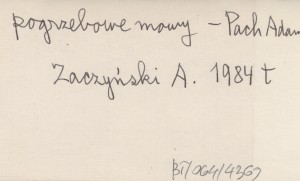 pogrzebowe mowy – Pach Adam
Zaczyński A. 1984 t
BT/064/4367